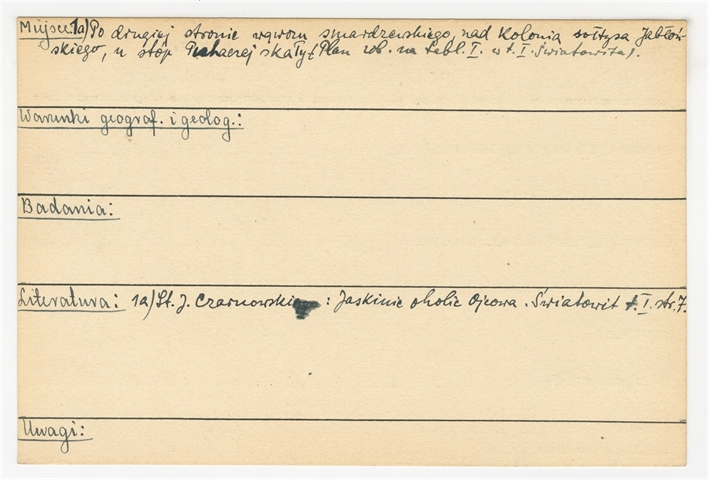 Miejsce: 1a) Po drugiej stronie wąwozu smardzewskiego, nad Kolonią sołtysa Jabłoń-
skiego, u stóp Puchaczej skały (Plan zob. na tabl. I. w t. I. Światowita).
Warunki geograf. i geolog.:
Badania:
Literatura: 1a) St. J. Czarnowski : Jaskinie okolic Ojcowa. Światowit t. I. str. 7.
Uwagi: